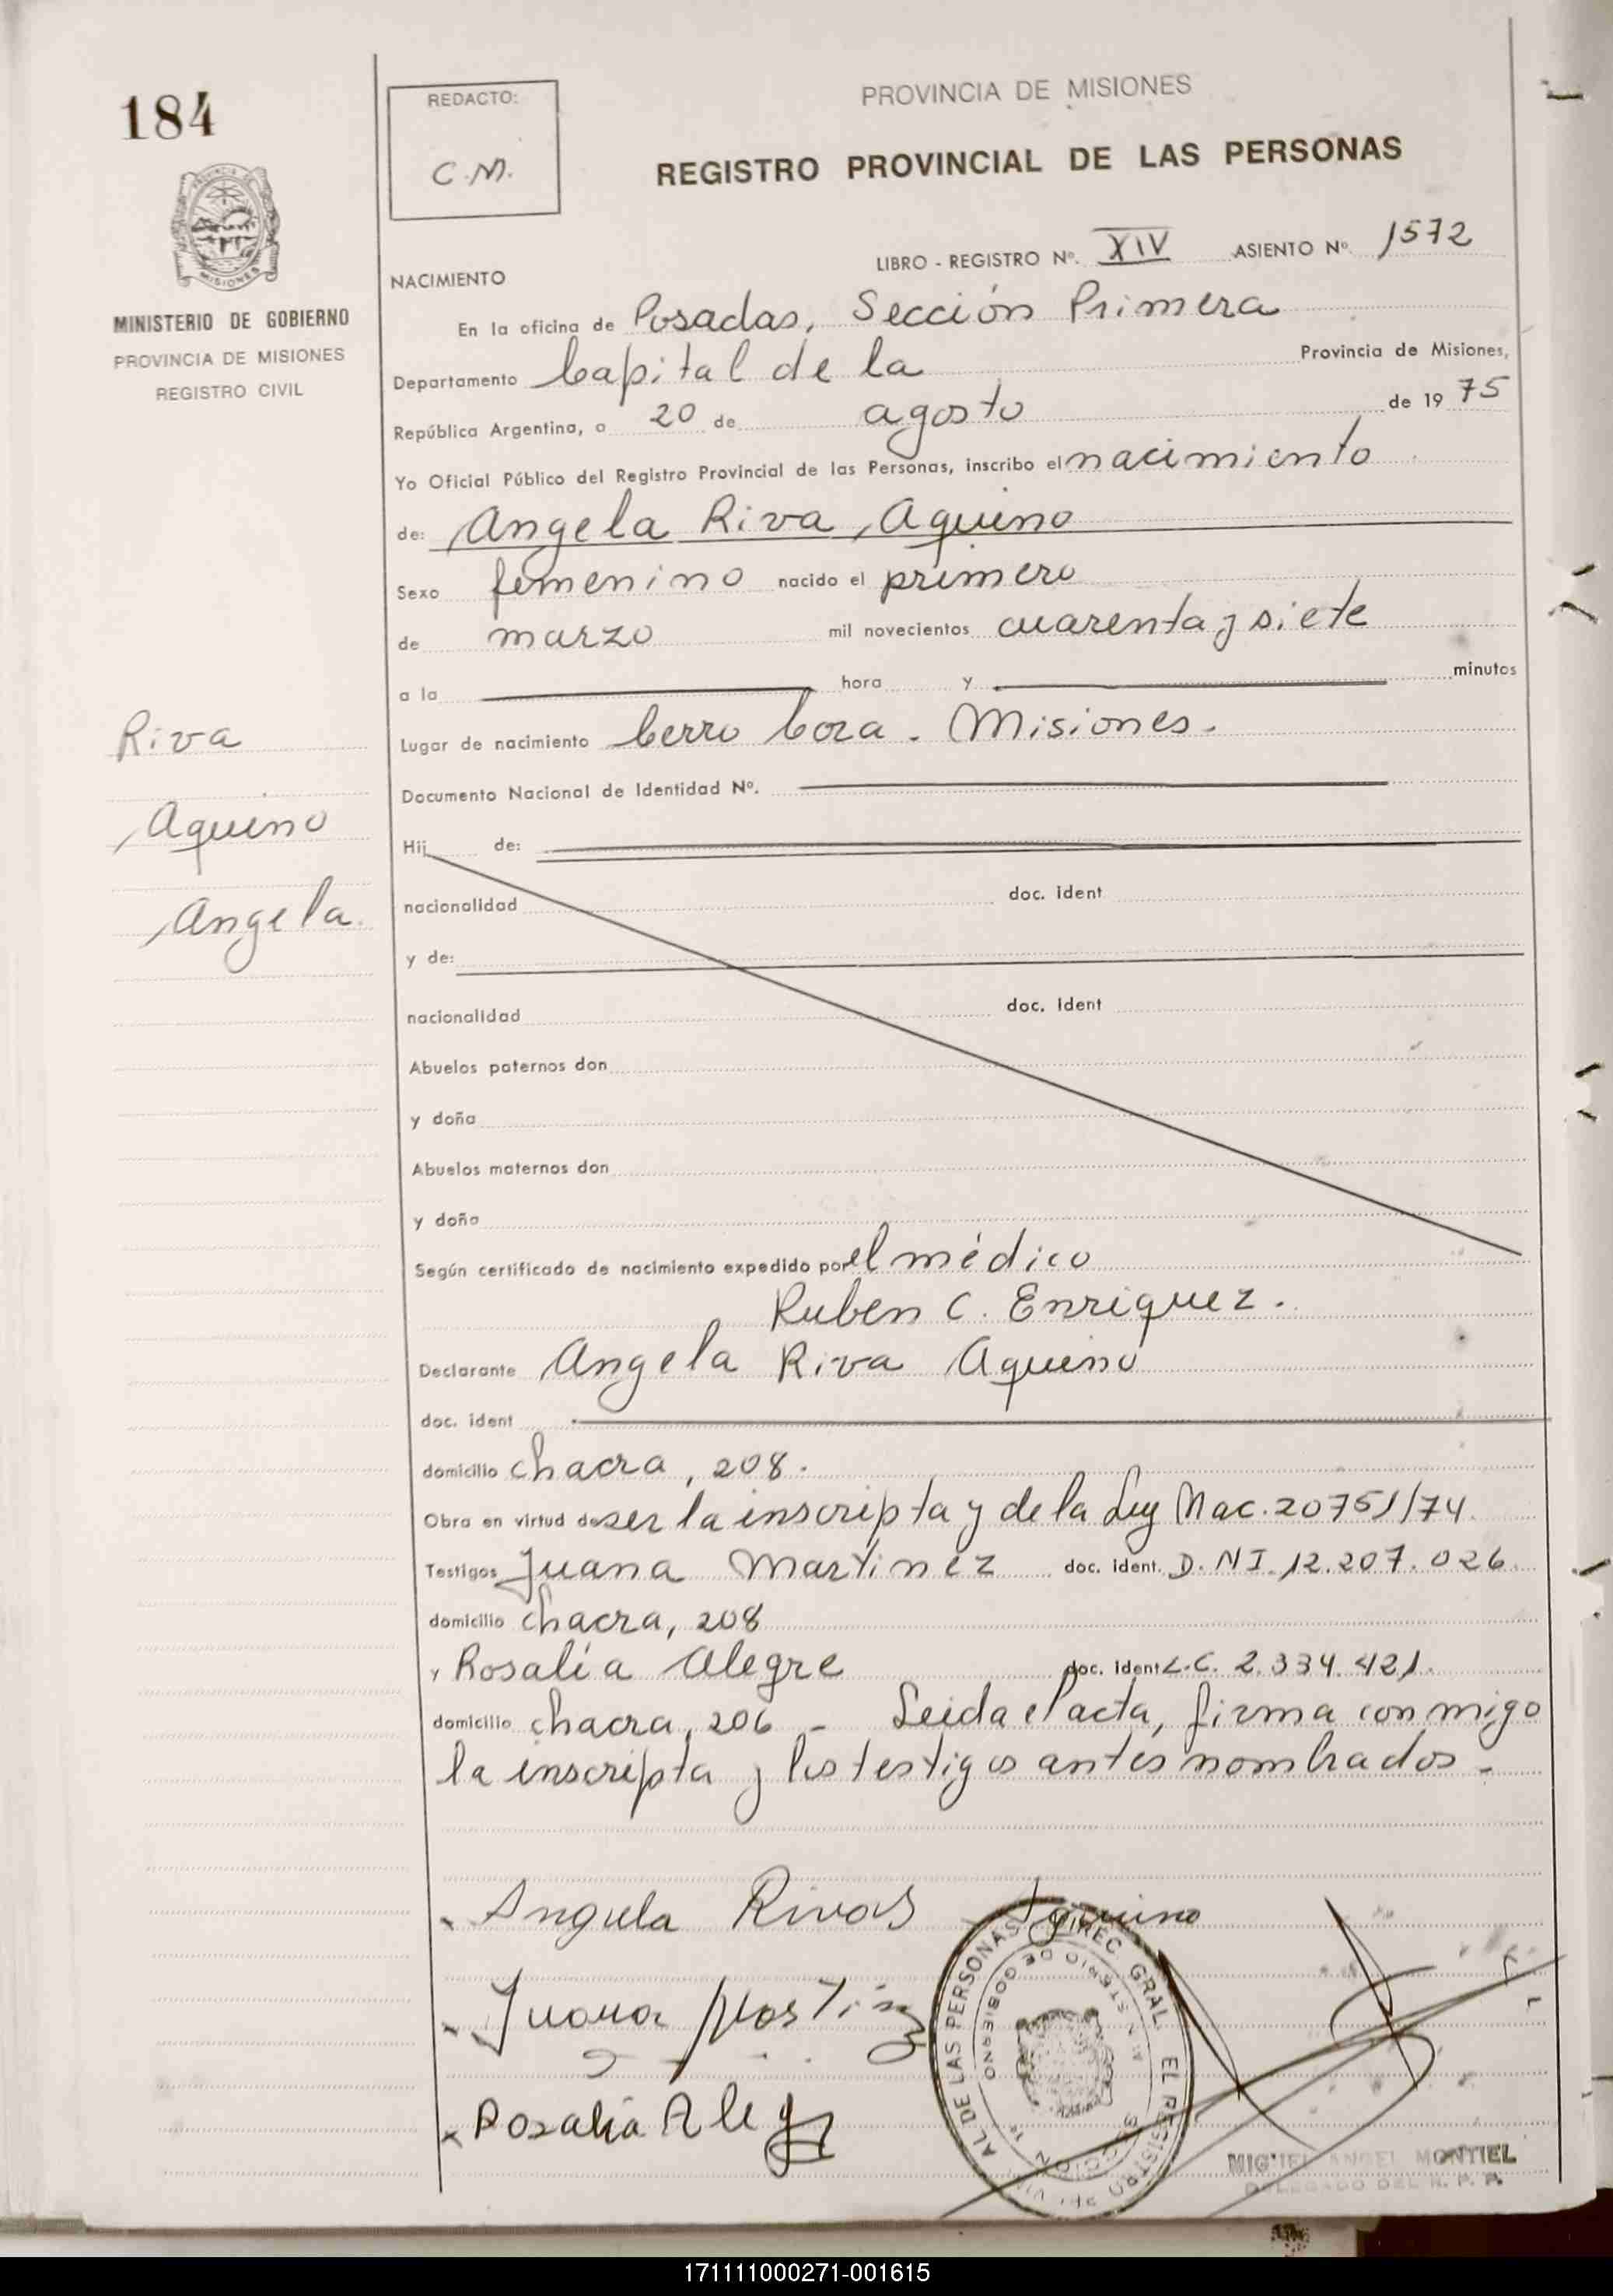 184
REDACTO:
C.M.
PROVINCIA DE MISIONES
REGISTRO PROVINCIAL DE LAS PERSONAS
MINISTERIO DE GOBIERNO
PROVINCIA DE MISIONES
REGISTRO CIVIL
LIBRO - REGISTRO Nº. XIV ASIENTO Nº 1572
NACIMIENTO
En la oficina de Posadas, Sección Primera
Departamento Capital de la Provincia de Misiones,
República Argentina, a 20 de agosto de 1975
Yo Oficial Público del Registro Provincial de las Personas, inscribo el nacimiento
de: Angela Riva Aquino
Sexo femenino nacido el primero
de marzo mil novecientos cuarenta y siete
a la hora y minutos
Riva
Aquino
Angela
Lugar de nacimiento Cerro Cora - Misiones.
Documento Nacional de Identidad Nº.
Hij de:
nacionalidad doc. ident
y de:
nacionalidad doc. ident
Abuelos paternos don
y doña
Abuelos maternos don
y doña
Según certificado de nacimiento expedido por el médico
Ruben C. Enriquez.
Declarante Angela Riva Aquino
doc. ident
domicilio chacra, 208.
Obra en virtud de ser la inscripta y de la Ley Nac. 20751/74.
Testigos Juana Martinez doc. ident. D.N.I. 12.207.026
domicilio chacra, 208
y Rosalía Alegre doc. ident L.C. 2.334.421.
domicilio chacra, 206 - Leida el acta, firma conmigo
la inscripta y los testigos antes nombrados.-
Angela Rivas Aquino
Juana Martinez
Rosalia Aleg
DIREC. GRAL. EL REGISTRO PROVINCIAL DE LAS PERSONAS
MINISTERIO DE GOBIERNO
MIGUEL ANGEL MONTIEL
DELEGADO DEL R. P. P.
171111000271-001615